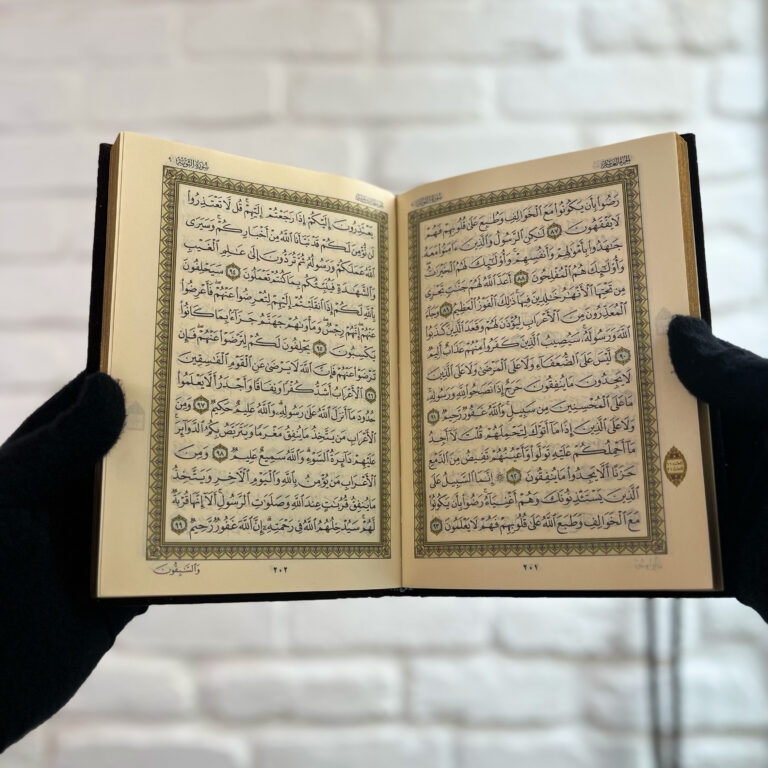 الجزء العاشر
سورة التوبة
رَضُوا۟ بِأَن يَكُونُوا۟ مَعَ ٱلْخَوَالِفِ وَطُبِعَ عَلَىٰ قُلُوبِهِمْ فَهُمْ
لَا يَفْقَهُونَ ٨٧ لَٰكِنِ ٱلرَّسُولُ وَٱلَّذِينَ ءَامَنُوا۟ مَعَهُۥ
جَٰهَدُوا۟ بِأَمْوَٰلِهِمْ وَأَنفُسِهِمْ ۚ وَأُو۟لَٰٓئِكَ لَهُمُ ٱلْخَيْرَٰتُ ۖ
وَأُو۟لَٰٓئِكَ هُمُ ٱلْمُفْلِحُونَ ٨٨ أَعَدَّ ٱللَّهُ لَهُمْ جَنَّٰتٍ تَجْرِى
مِن تَحْتِهَا ٱلْأَنْهَٰرُ خَٰلِدِينَ فِيهَا ۚ ذَٰلِكَ ٱلْفَوْزُ ٱلْعَظِيمُ ٨٩ وَجَآءَ
ٱلْمُعَذِّرُونَ مِنَ ٱلْأَعْرَابِ لِيُؤْذَنَ لَهُمْ وَقَعَدَ ٱلَّذِينَ كَذَبُوا۟
ٱللَّهَ وَرَسُولَهُۥ ۚ سَيُصِيبُ ٱلَّذِينَ كَفَرُوا۟ مِنْهُمْ عَذَابٌ أَلِيمٌ
٩٠ لَّيْسَ عَلَى ٱلضُّعَفَآءِ وَلَا عَلَى ٱلْمَرْضَىٰ وَلَا عَلَى ٱلَّذِينَ
لَا يَجِدُونَ مَا يُنفِقُونَ حَرَجٌ إِذَا نَصَحُوا۟ لِلَّهِ وَرَسُولِهِۦ ۚ
مَا عَلَى ٱلْمُحْسِنِينَ مِن سَبِيلٍ ۚ وَٱللَّهُ غَفُورٌ رَّحِيمٌ ٩١
وَلَا عَلَى ٱلَّذِينَ إِذَا مَآ أَتَوْكَ لِتَحْمِلَهُمْ قُلْتَ لَآ أَجِدُ
مَآ أَحْمِلُكُمْ عَلَيْهِ تَوَلَّوا۟ وَّأَعْيُنُهُمْ تَفِيضُ مِنَ ٱلدَّمْعِ
حَزَنًا أَلَّا يَجِدُوا۟ مَا يُنفِقُونَ ٩٢ ۞ إِنَّمَا ٱلسَّبِيلُ عَلَى
ٱلَّذِينَ يَسْتَـْٔذِنُونَكَ وَهُمْ أَغْنِيَآءُ ۚ رَضُوا۟ بِأَن يَكُونُوا۟
مَعَ ٱلْخَوَالِفِ وَطَبَعَ ٱللَّهُ عَلَىٰ قُلُوبِهِمْ فَهُمْ لَا يَعْلَمُونَ ٩٣
٢٠١
سورة التوبة ٩
يَعْتَذِرُونَ إِلَيْكُمْ إِذَا رَجَعْتُمْ إِلَيْهِمْ ۚ قُل لَّا تَعْتَذِرُوا۟
لَن نُّؤْمِنَ لَكُمْ قَدْ نَبَّأَنَا ٱللَّهُ مِنْ أَخْبَارِكُمْ ۚ وَسَيَرَى
ٱللَّهُ عَمَلَكُمْ وَرَسُولُهُۥ ثُمَّ تُرَدُّونَ إِلَىٰ عَٰلِمِ ٱلْغَيْبِ
وَٱلشَّهَٰدَةِ فَيُنَبِّئُكُم بِمَا كُنتُمْ تَعْمَلُونَ ٩٤ سَيَحْلِفُونَ
بِٱللَّهِ لَكُمْ إِذَا ٱنقَلَبْتُمْ إِلَيْهِمْ لِتُعْرِضُوا۟ عَنْهُمْ ۖ فَأَعْرِضُوا۟
عَنْهُمْ ۖ إِنَّهُمْ رِجْسٌ ۖ وَمَأْوَىٰهُمْ جَهَنَّمُ جَزَآءًۢ بِمَا كَانُوا۟
يَكْسِبُونَ ٩٥ يَحْلِفُونَ لَكُمْ لِتَرْضَوْا۟ عَنْهُمْ ۖ فَإِن
تَرْضَوْا۟ عَنْهُمْ فَإِنَّ ٱللَّهَ لَا يَرْضَىٰ عَنِ ٱلْقَوْمِ ٱلْفَٰسِقِينَ
٩٦ ٱلْأَعْرَابُ أَشَدُّ كُفْرًا وَنِفَاقًا وَأَجْدَرُ أَلَّا يَعْلَمُوا۟
حُدُودَ مَآ أَنزَلَ ٱللَّهُ عَلَىٰ رَسُولِهِۦ ۗ وَٱللَّهُ عَلِيمٌ حَكِيمٌ ٩٧ وَمِنَ
ٱلْأَعْرَابِ مَن يَتَّخِذُ مَا يُنفِقُ مَغْرَمًا وَيَتَرَبَّصُ بِكُمُ ٱلدَّوَآئِرَ ۚ
عَلَيْهِمْ دَآئِرَةُ ٱلسَّوْءِ ۗ وَٱللَّهُ سَمِيعٌ عَلِيمٌ ٩٨ وَمِنَ
ٱلْأَعْرَابِ مَن يُؤْمِنُ بِٱللَّهِ وَٱلْيَوْمِ ٱلْءَاخِرِ وَيَتَّخِذُ
مَا يُنفِقُ قُرُبَٰتٍ عِندَ ٱللَّهِ وَصَلَوَٰتِ ٱلرَّسُولِ ۚ أَلَآ إِنَّهَا قُرْبَةٌ
لَّهُمْ ۚ سَيُدْخِلُهُمُ ٱللَّهُ فِى رَحْمَتِهِۦٓ ۗ إِنَّ ٱللَّهَ غَفُورٌ رَّحِيمٌ ٩٩
٢٠٢
وَٱلسَّٰبِقُونَ